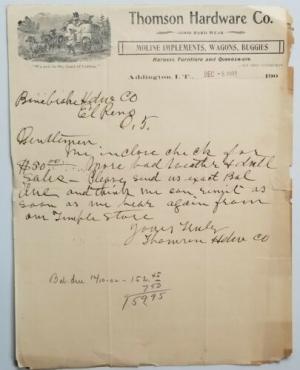 Thomson Hardware Co.
GOOD HARD WEAR
MOLINE IMPLEMENTS, WAGONS, BUGGIES
Harness, Furniture and Queensware.
Addington, I. T., DEC - 8 190
Hdwe Co
El Reno
O. T.
Gentlemen
We inclose check for
$50.00 More bad Weather & dull
Sales - Please send us exact Bal
due and think we can remit as
soon as we hear again from
our Temple Store
Yours truly
Thomson Hdwe Co
Bal due 152.45
7.50
159.95